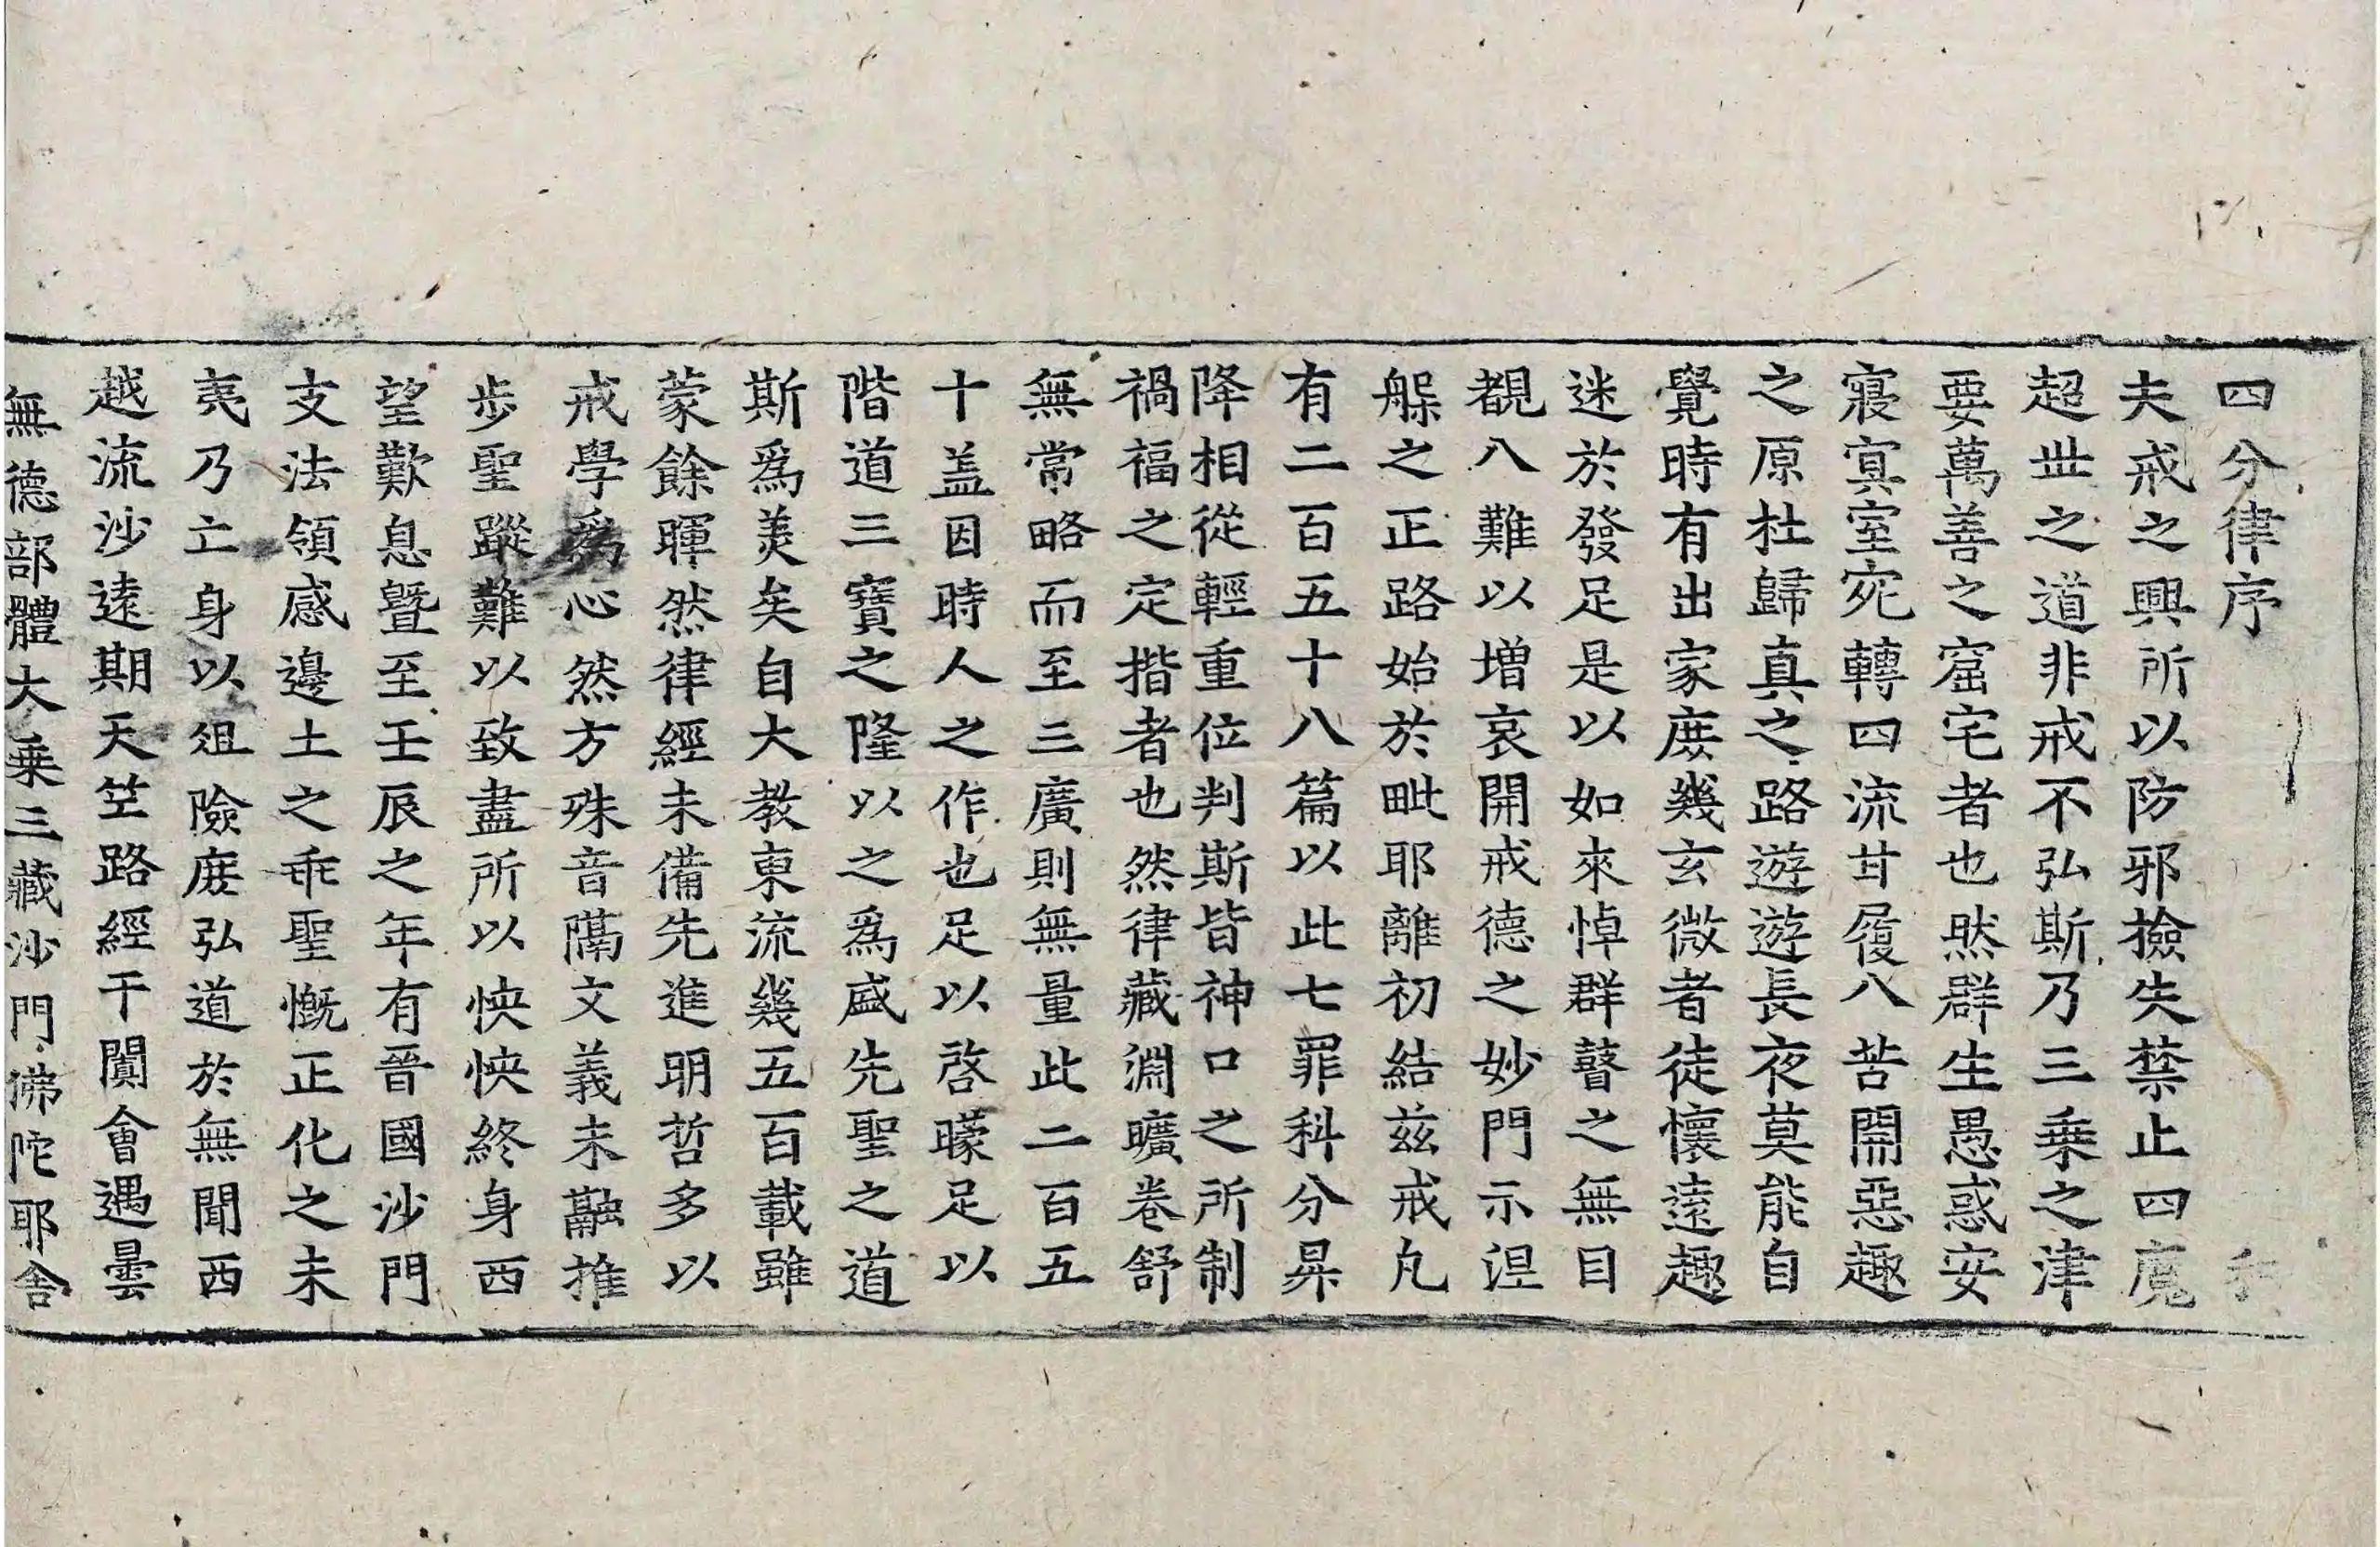 四分律序
夫戒之興所以防邪撿失禁止四魔
超世之道非戒不弘斯乃三乗之津
要萬善之窟宅者也然群生愚惑安
寢寘室宛轉四流甘履八苦開惡趣
之原杜歸真之路遊遊長夜莫能自
覺時有出家庶幾玄微者徒懷遠趣
迷於發足是以如來悼群瞽之無目
覩八難以増哀開戒德之妙門示涅
槃之正路始於毗耶離初結兹戒凡
有二百五十八篇以此七罪科分昇
降相從輕重位判斯皆神口之所制
禍福之定揩者也然律藏淵曠卷舒
無常略而至三廣則無量此二百五
十盖因時人之作也足以啓矇足以
階道三寶之隆以之爲盛先聖之道
斯爲美矣自大教東流幾五百載雖
蒙餘暉然律經未備先進明哲多以
戒學爲心然方殊音隔文義未融推
步聖蹤難以致盡所以怏怏終身西
望歎息曁至壬辰之年有晉國沙門
支法領感邊土之乖聖慨正化之未
夷乃亡身以俎險庶弘道於無聞西
越流沙遠期天竺路經于闐會遇曇
無德部體大乗三藏沙門佛陀耶舍